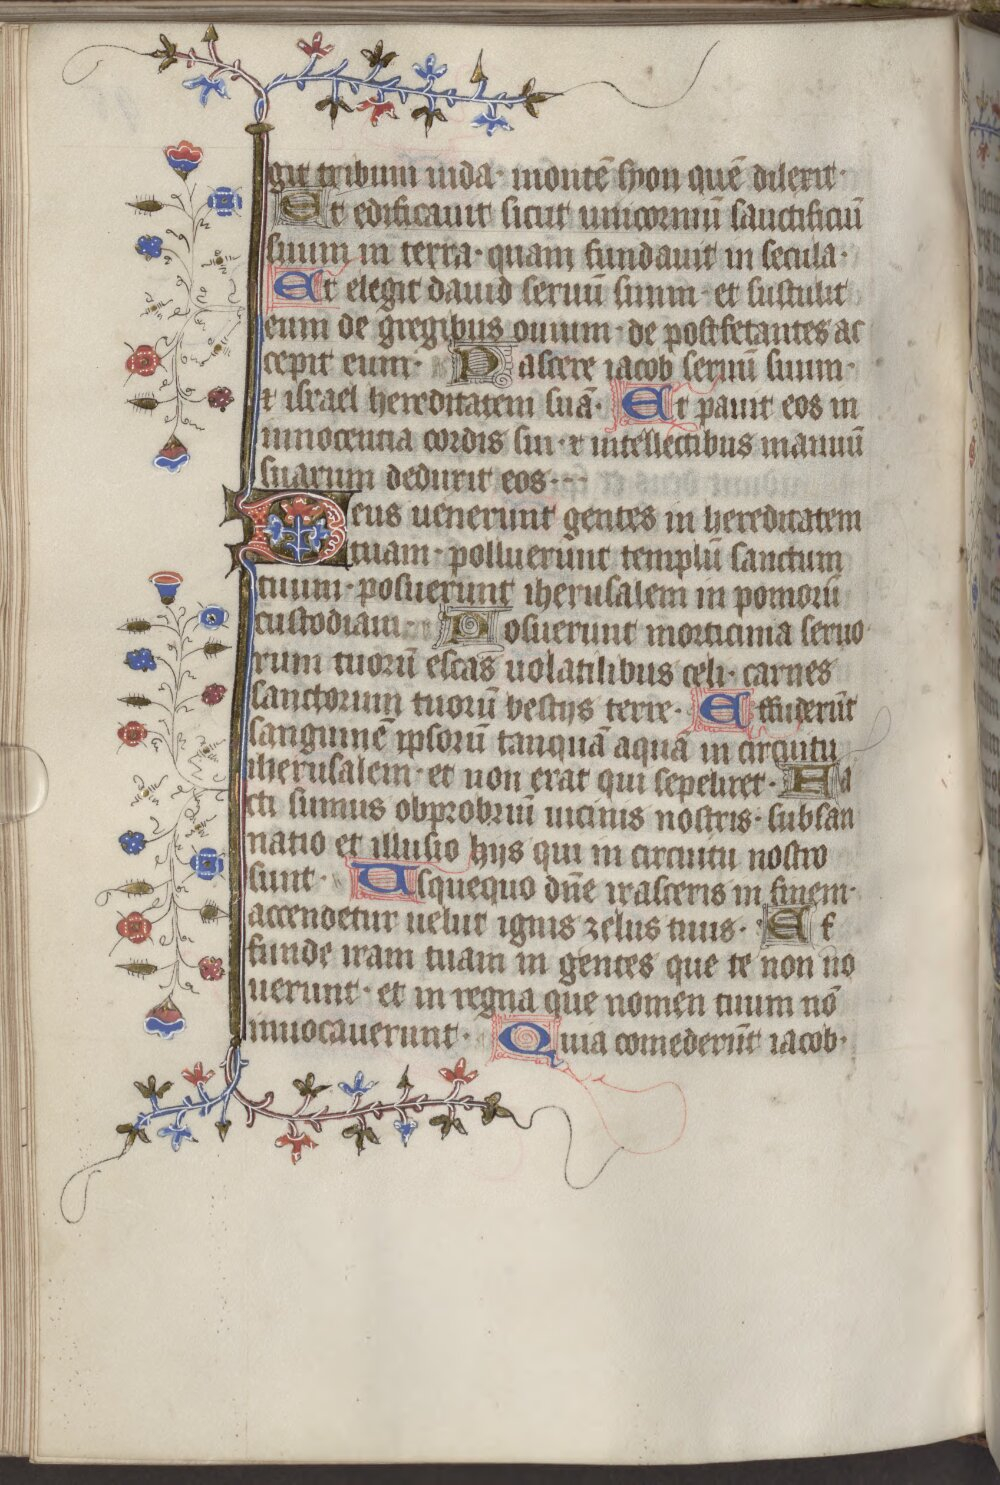 git tribum iuda· montē syon quē dilexit·
Et edificauit sicut unicorniū sanctificiū
suum in terra· quam fundauit in secula·
Et elegit dauid seruū suum· et sustulit
eum de gregibus ouium· de postfetantes ac
cepit eum· Pascere iacob seruū suum·
⁊ israel hereditatem suā· Et pauit eos in
innocentia cordis sui· ⁊ intellectibus manuū
suarum deduxit eos·
Deus uenerunt gentes in hereditatem
tuam· polluerunt templū sanctum
tuum· posuerunt iherusalem in pomorū
custodiam· Posuerunt morticinia seruo
rum tuorū escas uolatilibus celi· carnes
sanctorum tuorū bestijs terre· Effuderūt
sanguinē ipsorū tanquā aquā in circuitu
iherusalem· et non erat qui sepeliret· Fa
cti sumus obprobriū uicinis nostris· subsan
natio et illusio hijs qui in circuitu nostro
sunt· Usquequo dn̄e irasceris in finem·
accendetur uelut ignis zelus tuus· Ef
funde iram tuam in gentes que te non no
uerunt· et in regna que nomen tuum nō
inuocauerunt· Quia comederūt iacob·